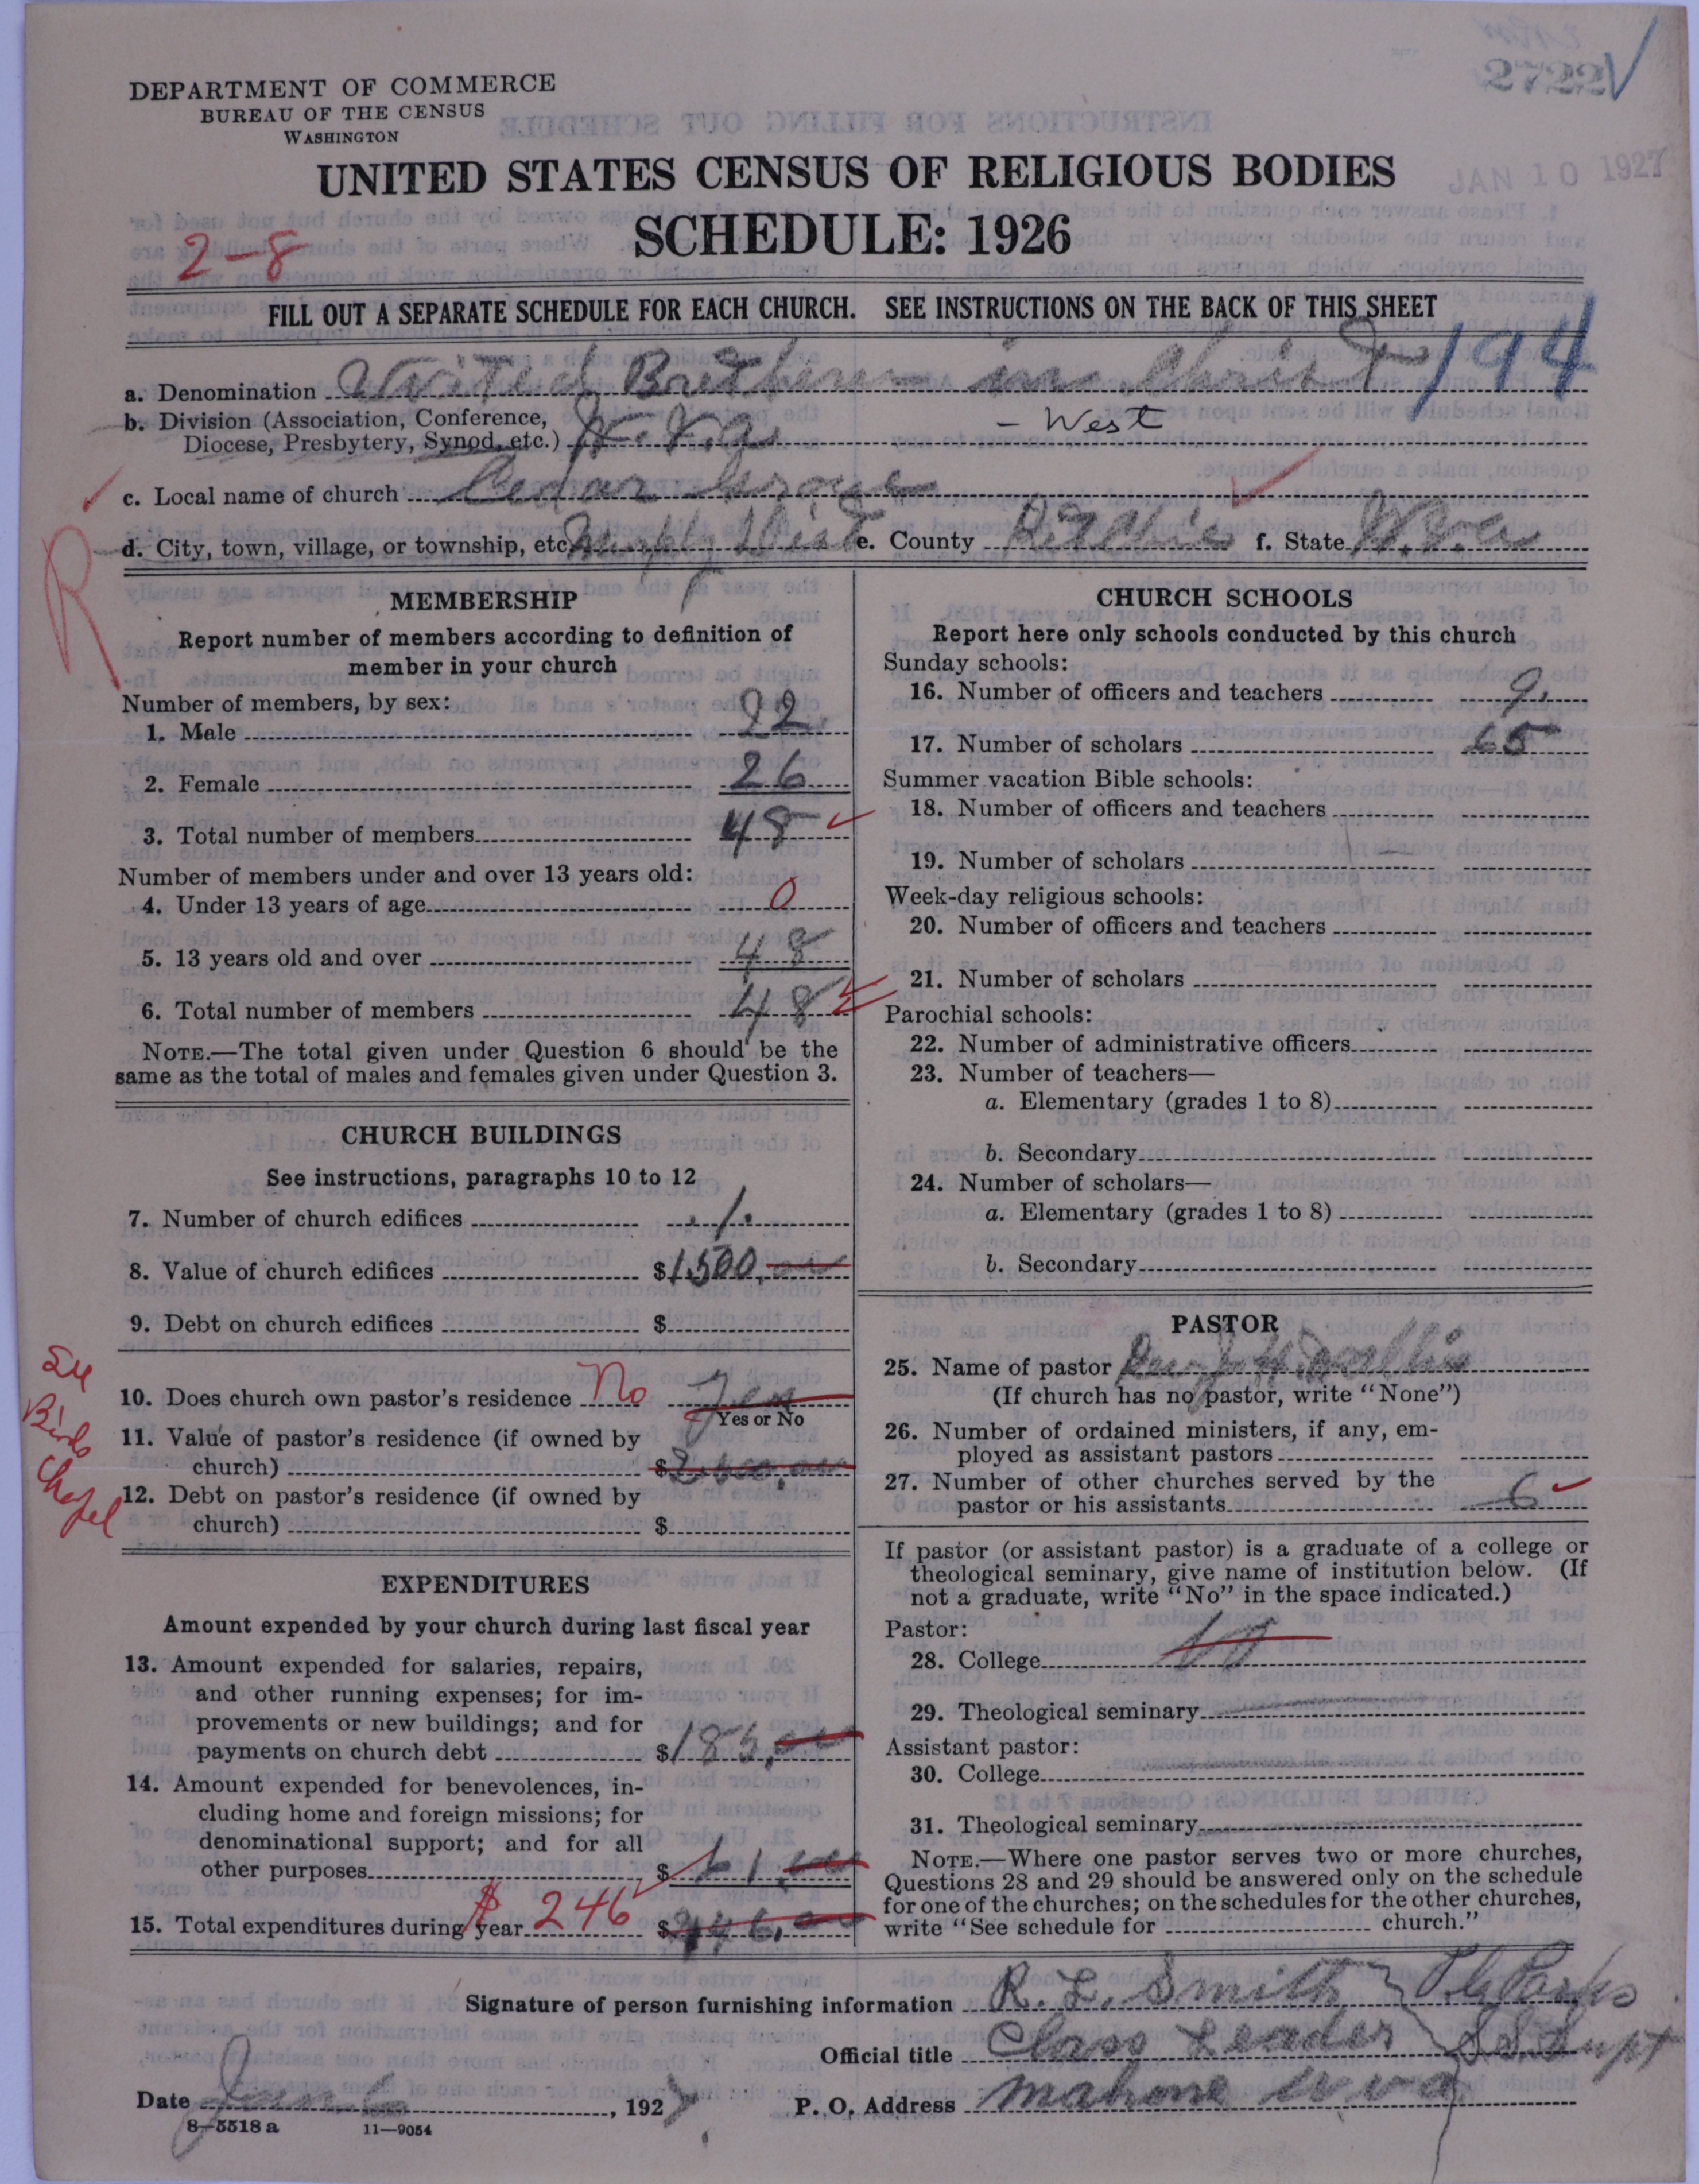 2722
DEPARTMENT OF COMMERCE
BUREAU OF THE CENSUS
WASHINGTON
UNITED STATES CENSUS OF RELIGIOUS BODIES
JAN 10 1927
SCHEDULE: 1926
2-8
FILL OUT A SEPARATE SCHEDULE FOR EACH CHURCH. SEE INSTRUCTIONS ON THE BACK OF THIS SHEET
a. Denomination United Brethern in Christ 194
b. Division (Association, Conference,
Diocese, Presbytery, Synod, etc.) W. Va - West
c. Local name of church Cedar Grove
R
d. City, town, village, or township, etc. Murphy Dist e. County Ritchie f. State W. Va
MEMBERSHIP
Report number of members according to definition of
member in your church
Number of members, by sex:
1. Male 22
2. Female 26
3. Total number of members 48
Number of members under and over 13 years old:
4. Under 13 years of age 0
5. 13 years old and over 48
6. Total number of members 48
NOTE.—The total given under Question 6 should be the
same as the total of males and females given under Question 3.
CHURCH BUILDINGS
See instructions, paragraphs 10 to 12
7. Number of church edifices 1
8. Value of church edifices $1,500.00
9. Debt on church edifices $
See
Birds
Chapel
10. Does church own pastor's residence No Yes
Yes or No
11. Value of pastor's residence (if owned by
church) $
12. Debt on pastor's residence (if owned by
church) $
EXPENDITURES
Amount expended by your church during last fiscal year
13. Amount expended for salaries, repairs,
and other running expenses; for im-
provements or new buildings; and for
payments on church debt $185.00
14. Amount expended for benevolences, in-
cluding home and foreign missions; for
denominational support; and for all
other purposes $61.00
15. Total expenditures during year $246 $
CHURCH SCHOOLS
Report here only schools conducted by this church
Sunday schools:
16. Number of officers and teachers 9
17. Number of scholars 65
Summer vacation Bible schools:
18. Number of officers and teachers
19. Number of scholars
Week-day religious schools:
20. Number of officers and teachers
21. Number of scholars
Parochial schools:
22. Number of administrative officers
23. Number of teachers—
a. Elementary (grades 1 to 8)
b. Secondary
24. Number of scholars—
a. Elementary (grades 1 to 8)
b. Secondary
PASTOR
25. Name of pastor
(If church has no pastor, write "None")
26. Number of ordained ministers, if any, em-
ployed as assistant pastors
27. Number of other churches served by the
pastor or his assistants 6
If pastor (or assistant pastor) is a graduate of a college or
theological seminary, give name of institution below. (If
not a graduate, write "No" in the space indicated.)
Pastor:
28. College
29. Theological seminary
Assistant pastor:
30. College
31. Theological seminary
NOTE.—Where one pastor serves two or more churches,
Questions 28 and 29 should be answered only on the schedule
for one of the churches; on the schedules for the other churches,
write "See schedule for church."
Signature of person furnishing information R. L. Smith Parks
Official title Class Leader S.S. Supt
Date Jan 6, 1927 P. O. Address Mahone W Va
8-5518 a 11-9054